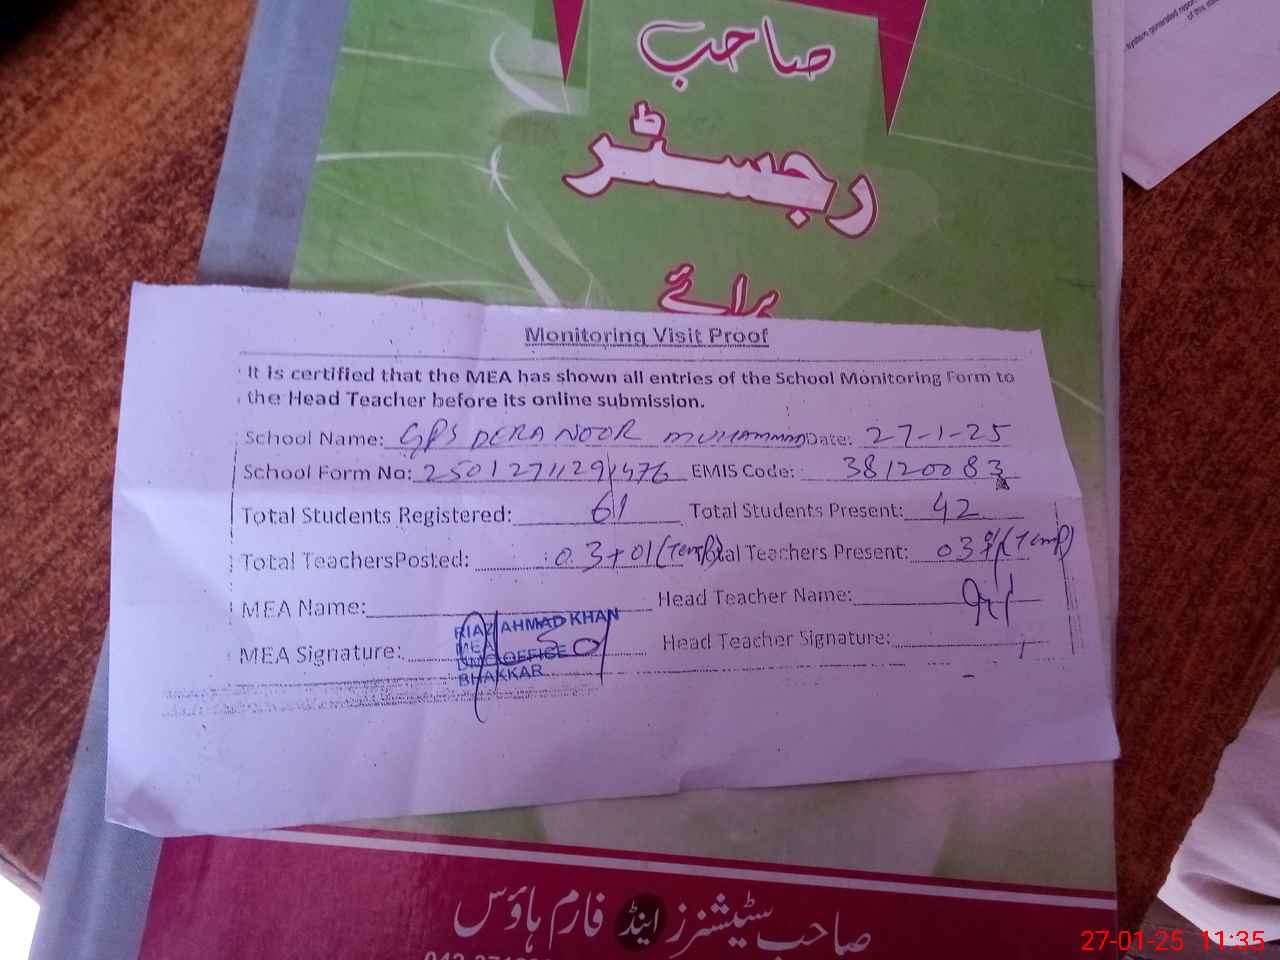 system generated report
of this
صاحب
رجسٹر
برائے
Monitoring Visit Proof
It is certified that the MEA has shown all entries of the School Monitoring Form to
the Head Teacher before its online submission.
School Name: GPS DERA NOOR MUHAMMAD Date: 27-1-25
School Form No: EMIS Code: 38120083
Total Students Registered: 61 Total Students Present: 42
Total TeachersPosted: 03+01(Temp) Total Teachers Present: 03+ (Temp)
MEA Name: Head Teacher Name:
RIAZ AHMAD KHAN
MEA
MEA Signature: DMO OFFICE Head Teacher Signature:
BHAKKAR
صاحب سٹیشنرز اینڈ فارم ہاؤس
27-01-25 11:35